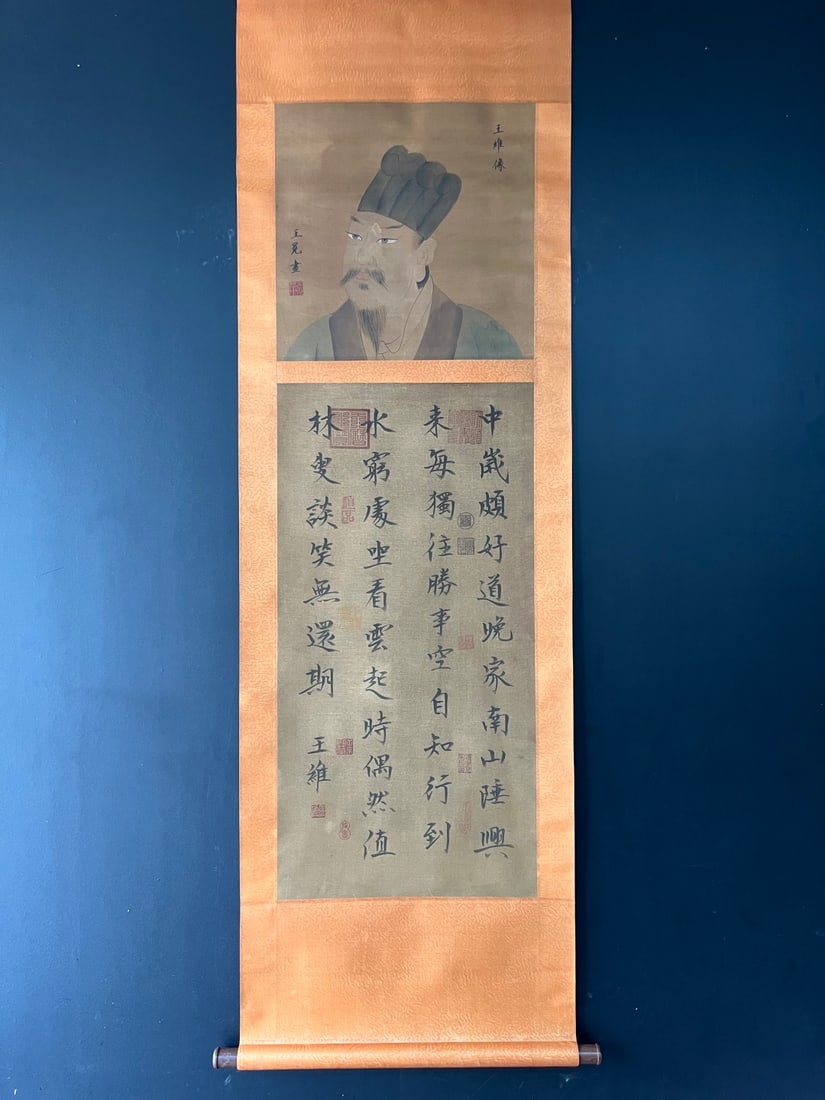 王維像
王冕畫
中歲頗好道晚家南山陲興
来每獨往勝事空自知行到
水窮處坐看雲起時偶然值
林叟談笑無還期
王維